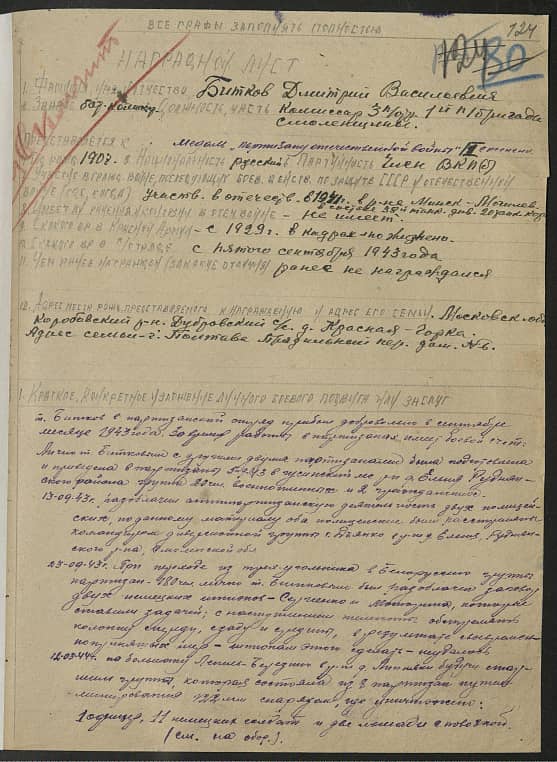 ВСЕ ГРАФЫ ЗАПОЛНЯТЬ ПОЛНОСТЬЮ
124
124 80
НАГРАДНОЙ ЛИСТ
1. ФАМИЛИЯ, ИМЯ И ОТЧЕСТВО Битков Дмитрий Василевия
2. ЗВАНИЕ бат. комиссар ДОЛЖНОСТЬ, ЧАСТЬ Комиссар 3 п/отр. 1ой п/бригада
смоленщине.
ПРЕДСТАВЛЯЕТСЯ К медали "партизану отечественной войны" II степени
1907. НАЦИОНАЛЬНОСТЬ русский ПАРТИЙНОСТЬ Член ВКП(б)
УЧАСТИЕ В ГРАЖД. ВОЙНЕ, ПОСЛЕДУЮЩИХ БОЕВ. ДЕЙСТВ. ПО ЗАЩИТЕ СССР И ОТЕЧЕСТВЕННОЙ
ВОЙНЕ (ГДЕ, КОГДА) участв. в отечеств. в 1941г. в р-не Минск-Могилев
в составе танк. див. 20
8. ИМЕЕТ ЛИ РАНЕНИЯ И КОНТУЗИИ В ОТЕЧ ВОЙНЕ - не имеет.
9. С КАКОГО ВР. В КРАСНОЙ АРМИИ - с 1929г. в кадрах
10. С КАКОГО ВР. В П/ОТРЯДЕ с пятого сентября 1943 года
11. ЧЕМ РАНЕЕ НАГРАЖДЕН (ЗА КАКИЕ ОТЛИЧИЯ) ранее не награждался
12. АДРЕС МЕСТА РОЖД. ПРЕДСТАВЛЯЕМОГО К НАГРАЖДЕНИЮ И АДРЕС ЕГО СЕМЬИ. Московск. обл.
Коробовский р-н. Дубровский с/с. д. Красная-Горка.
Адрес семьи - г. Полтава Прядильный пер. дом. №
1. КРАТКОЕ, КОНКРЕТНОЕ ИЗЛОЖЕНИЕ ЛИЧНОГО БОЕВОГО ПОДВИГА ИЛИ ЗАСЛУГ
т. Битков в партизанский отряд прибыл добровольно в сентябре
месяце 1943 года. За время работы в партизанах имеет боевой счет:
Лично т. Битковым с другими двумя партизанами была подготовлена
и приведена в партизаны 5-9-43 в р-на Руднян-
ского района группа 20 чел. военнопленных и 2 гражданских.
13-09-43г. разоблачил антипартизанскую деятельность двух полицей-
ских, по данному материалу оба полицейские были расстреляны
командиром диверсионной группы т. в р-не Руднян-
ского р-на, Смоленской обл.
23-09-43г. При переходе из треугольника в Белоруссию группы
партизан - 180 чел. лично т. Битковым был разоблачен заговор
двух немецких шпионов - и которые
ставили задачей; с наступлением темноты обстрелять
колонну спереди, сзади и средины, в результате своевремен-
но принятых мер - шпионам этого сделать - не удалось
12-03-44г. на большаке Лепель - в р-не д. будучи стар-
шим группы, которая состояла из 8 партизан путем
минирования 122 мм снарядом, где уничтожено:
1 офицер, 11 немецких солдат и две лошади с повозкой.
(см. на обор.).